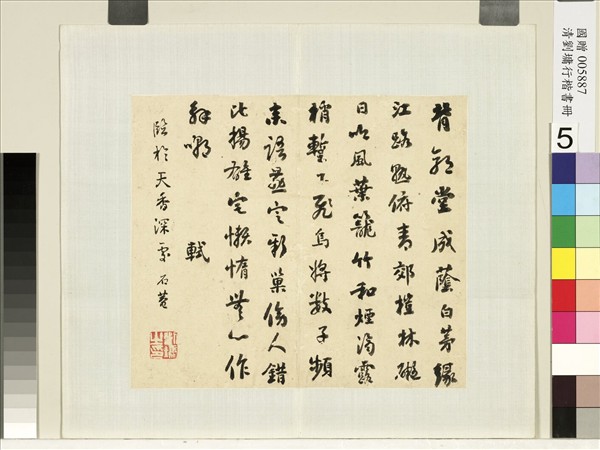 國贈 005887
清劉墉行楷書冊
5
背郭堂成蔭白茅緣
江路熟俯青郊榿林礙
日吟風葉籠竹和煙滴露
梢暫下飛烏將數子頻
來語燕定新巢傍人錯
比揚雄宅懶惰無心作
解嘲 軾
臨於天香深處 石菴